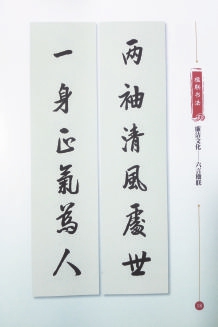 楹联书法
廉洁文化——六言楹联
两袖清風處世
一身正氣為人